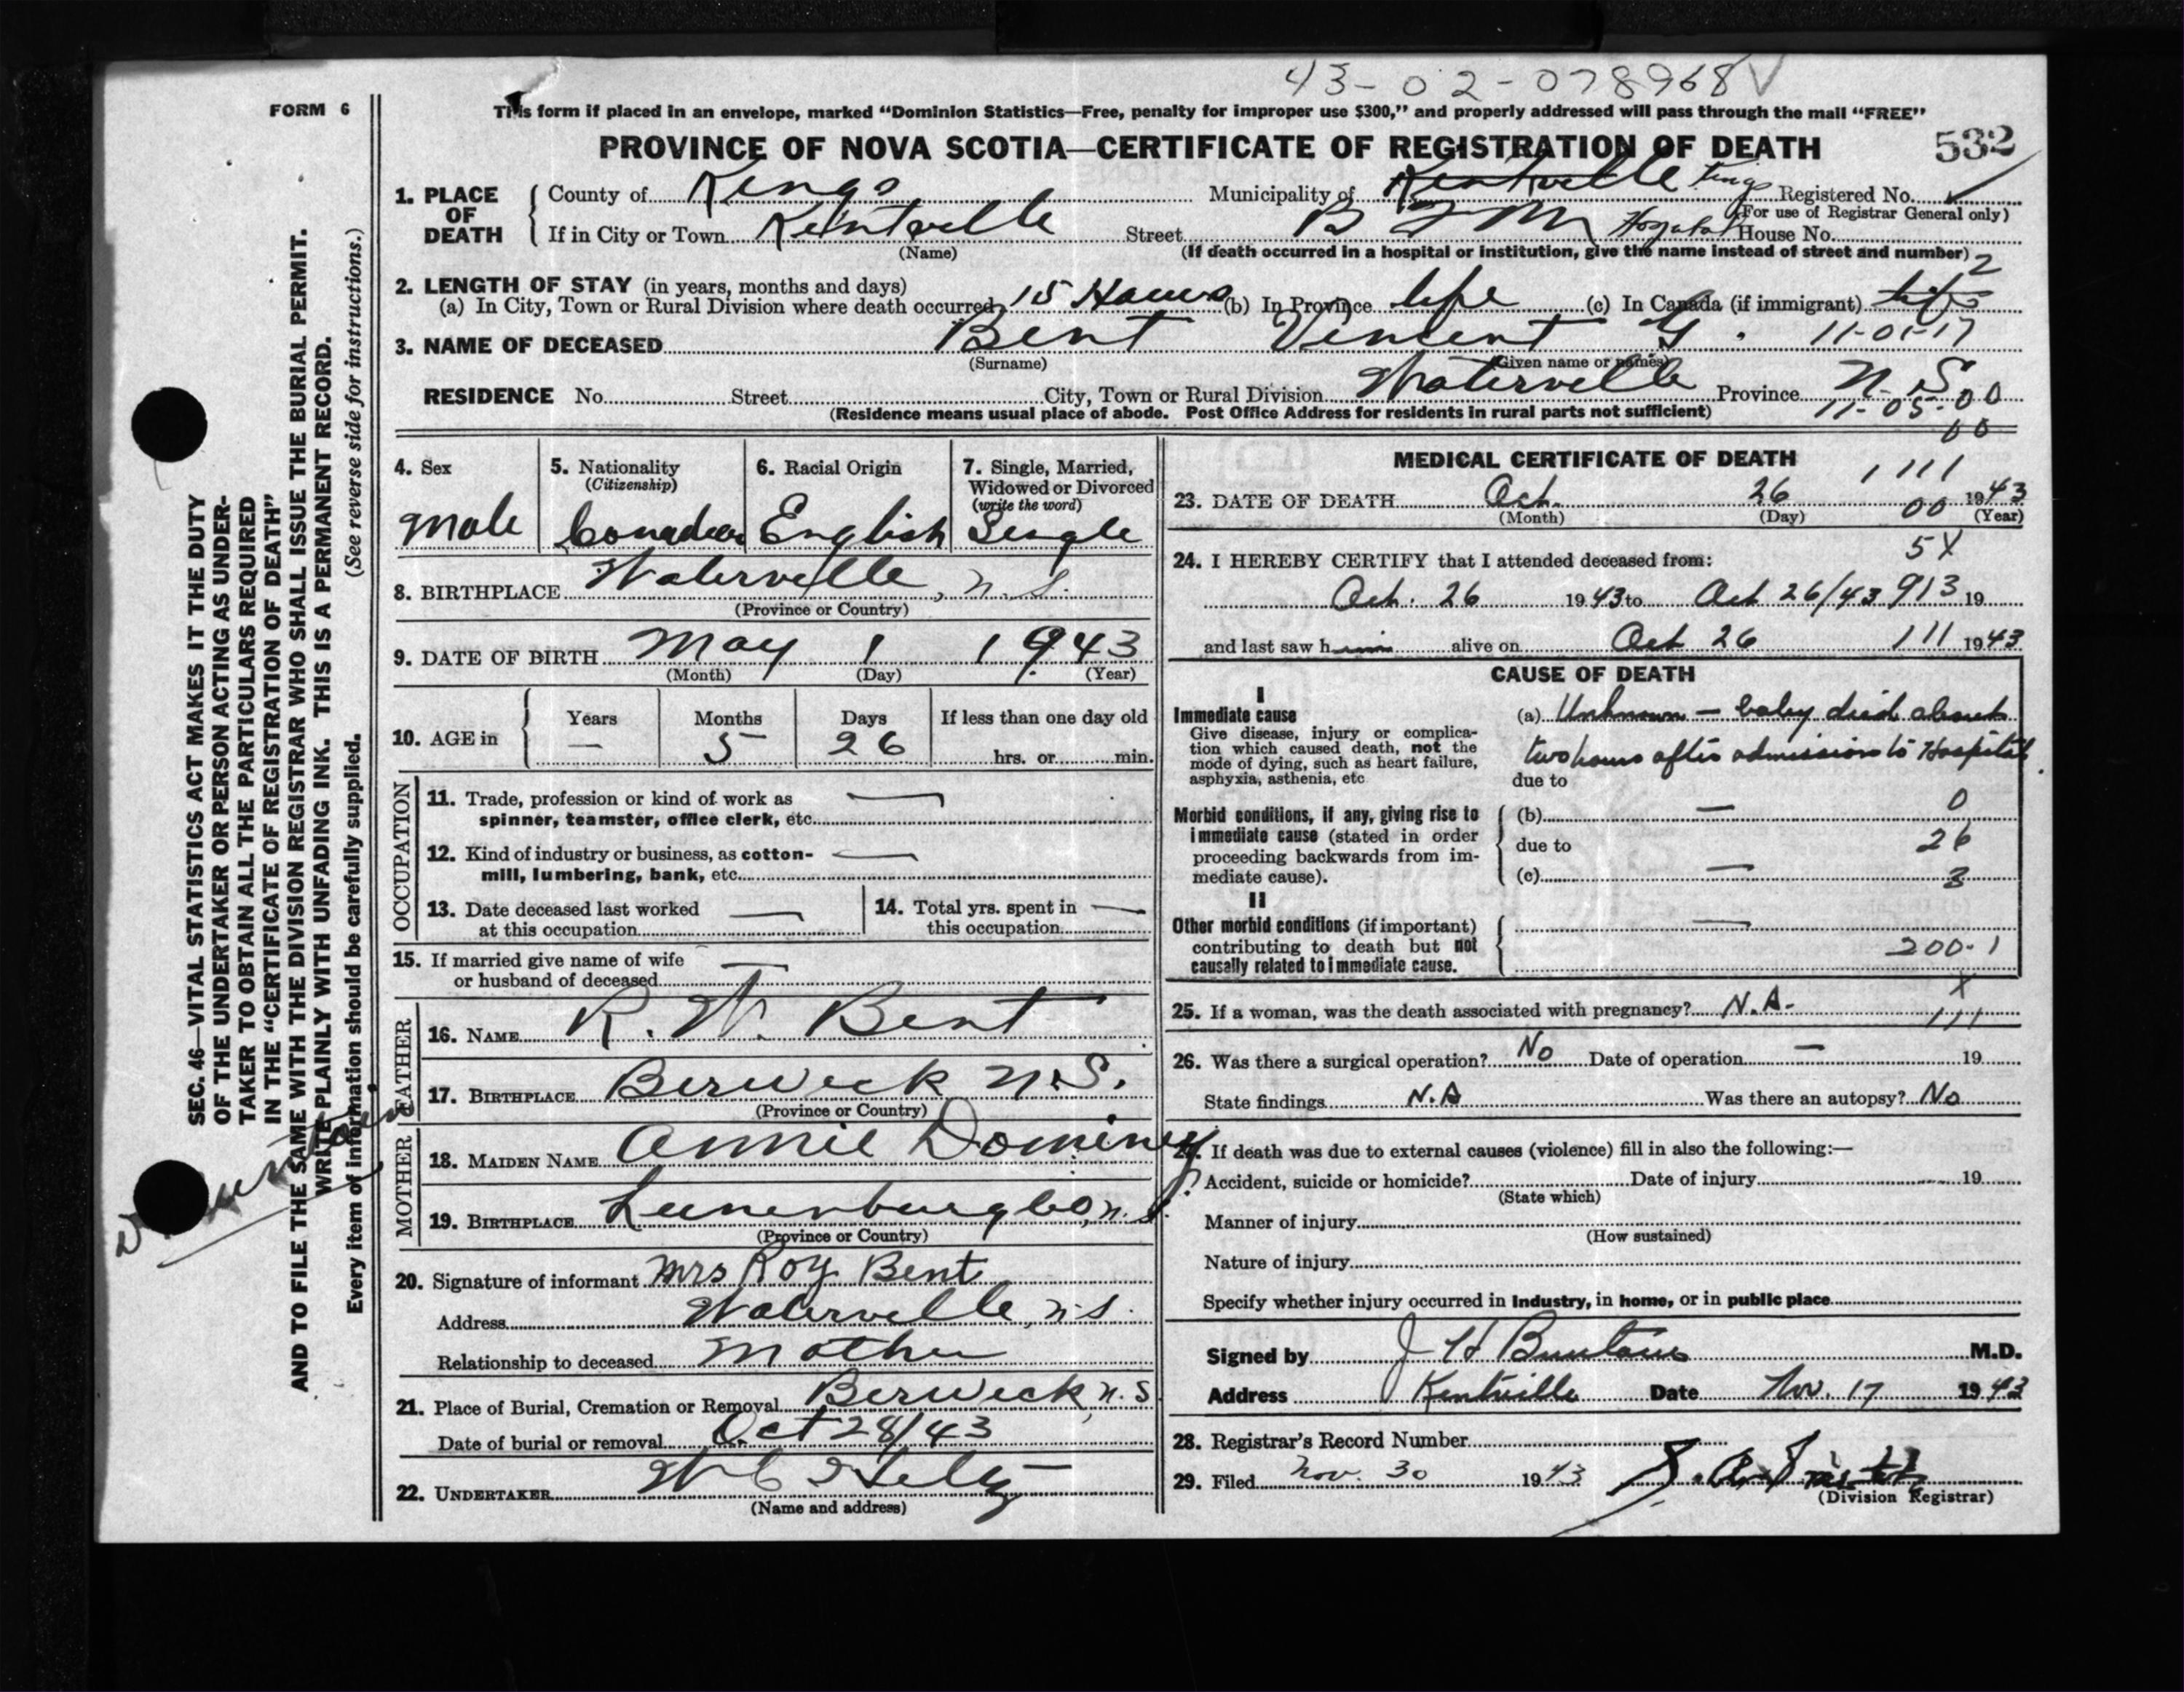 43-02-078968 V
FORM 6
This form if placed in an envelope, marked “Dominion Statistics—Free, penalty for improper use $300,” and properly addressed will pass through the mail “FREE”
PROVINCE OF NOVA SCOTIA—CERTIFICATE OF REGISTRATION OF DEATH 532
1. PLACE OF DEATH
County of Kings Municipality of Kentville Kings Registered No.
(For use of Registrar General only)
If in City or Town Kentville Street B F M Hospital House No.
(Name) (If death occurred in a hospital or institution, give the name instead of street and number)
2
2. LENGTH OF STAY (in years, months and days)
(a) In City, Town or Rural Division where death occurred 15 Hours (b) In Province life (c) In Canada (if immigrant) life
3. NAME OF DECEASED Bent Vincent G. 11-01-17
(Surname) (Given name or names)
RESIDENCE No. Street City, Town or Rural Division Waterville Province N.S.
(Residence means usual place of abode. Post Office Address for residents in rural parts not sufficient) 11-05-00
00
4. Sex
Male
5. Nationality
(Citizenship)
Canadian
6. Racial Origin
English
7. Single, Married,
Widowed or Divorced
(write the word)
Single
8. BIRTHPLACE Waterville, N.S.
(Province or Country)
9. DATE OF BIRTH May 1 1943
(Month) (Day) (Year)
10. AGE in
Years Months Days If less than one day old
— 5 26 hrs. or min.
OCCUPATION
11. Trade, profession or kind of work as —
spinner, teamster, office clerk, etc.
12. Kind of industry or business, as cotton- —
mill, lumbering, bank, etc.
13. Date deceased last worked —
at this occupation
14. Total yrs. spent in —
this occupation
15. If married give name of wife —
or husband of deceased
FATHER
16. NAME R. W. Bent
17. BIRTHPLACE Berwick N.S.
(Province or Country)
MOTHER
18. MAIDEN NAME Annie Dominey
19. BIRTHPLACE Lunenburg Co, N.S.
(Province or Country)
20. Signature of informant Mrs Roy Bent
Address Waterville, N.S.
Relationship to deceased Mother
21. Place of Burial, Cremation or Removal Berwick, N.S
Date of burial or removal Oct 28/43
22. UNDERTAKER
(Name and address)
MEDICAL CERTIFICATE OF DEATH
1 111
23. DATE OF DEATH Oct. 26 00 1943
(Month) (Day) (Year)
5X
24. I HEREBY CERTIFY that I attended deceased from:
Oct. 26 1943 to Oct 26/43 913 19
and last saw him alive on Oct 26 111 1943
CAUSE OF DEATH
I
Immediate cause
Give disease, injury or complica-
tion which caused death, not the
mode of dying, such as heart failure,
asphyxia, asthenia, etc
(a) Unknown — baby died about
two hours after admission to Hospital.
due to
Morbid conditions, if any, giving rise to
immediate cause (stated in order
proceeding backwards from im-
mediate cause).
(b) — 0
due to 26
(c) — 3
II
Other morbid conditions (if important)
contributing to death but not
causally related to immediate cause.
—
200-1
X
25. If a woman, was the death associated with pregnancy? N.A.
111
26. Was there a surgical operation? No Date of operation — 19
State findings N.A Was there an autopsy? No
27. If death was due to external causes (violence) fill in also the following:—
Accident, suicide or homicide? Date of injury 19
(State which)
Manner of injury
(How sustained)
Nature of injury
Specify whether injury occurred in Industry, in home, or in public place
Signed by J H M.D.
Address Kentville Date Nov. 17 1943
28. Registrar's Record Number
29. Filed Nov. 30 1943
(Division Registrar)
SEC. 46—VITAL STATISTICS ACT MAKES IT THE DUTY
OF THE UNDERTAKER OR PERSON ACTING AS UNDER-
TAKER TO OBTAIN ALL THE PARTICULARS REQUIRED
IN THE “CERTIFICATE OF REGISTRATION OF DEATH”
AND TO FILE THE SAME WITH THE DIVISION REGISTRAR WHO SHALL ISSUE THE BURIAL PERMIT.
WRITE PLAINLY WITH UNFADING INK. THIS IS A PERMANENT RECORD.
Every item of information should be carefully supplied. (See reverse side for instructions.)